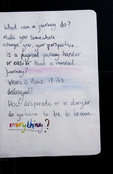 What can a journey do?
Take you somewhere
change you, your perspective.
Is a physical journey harder
or easier than a mental
journey?
Where is home if it's
destroyed?
How desperate or in danger
do you have to be to leave
everything?